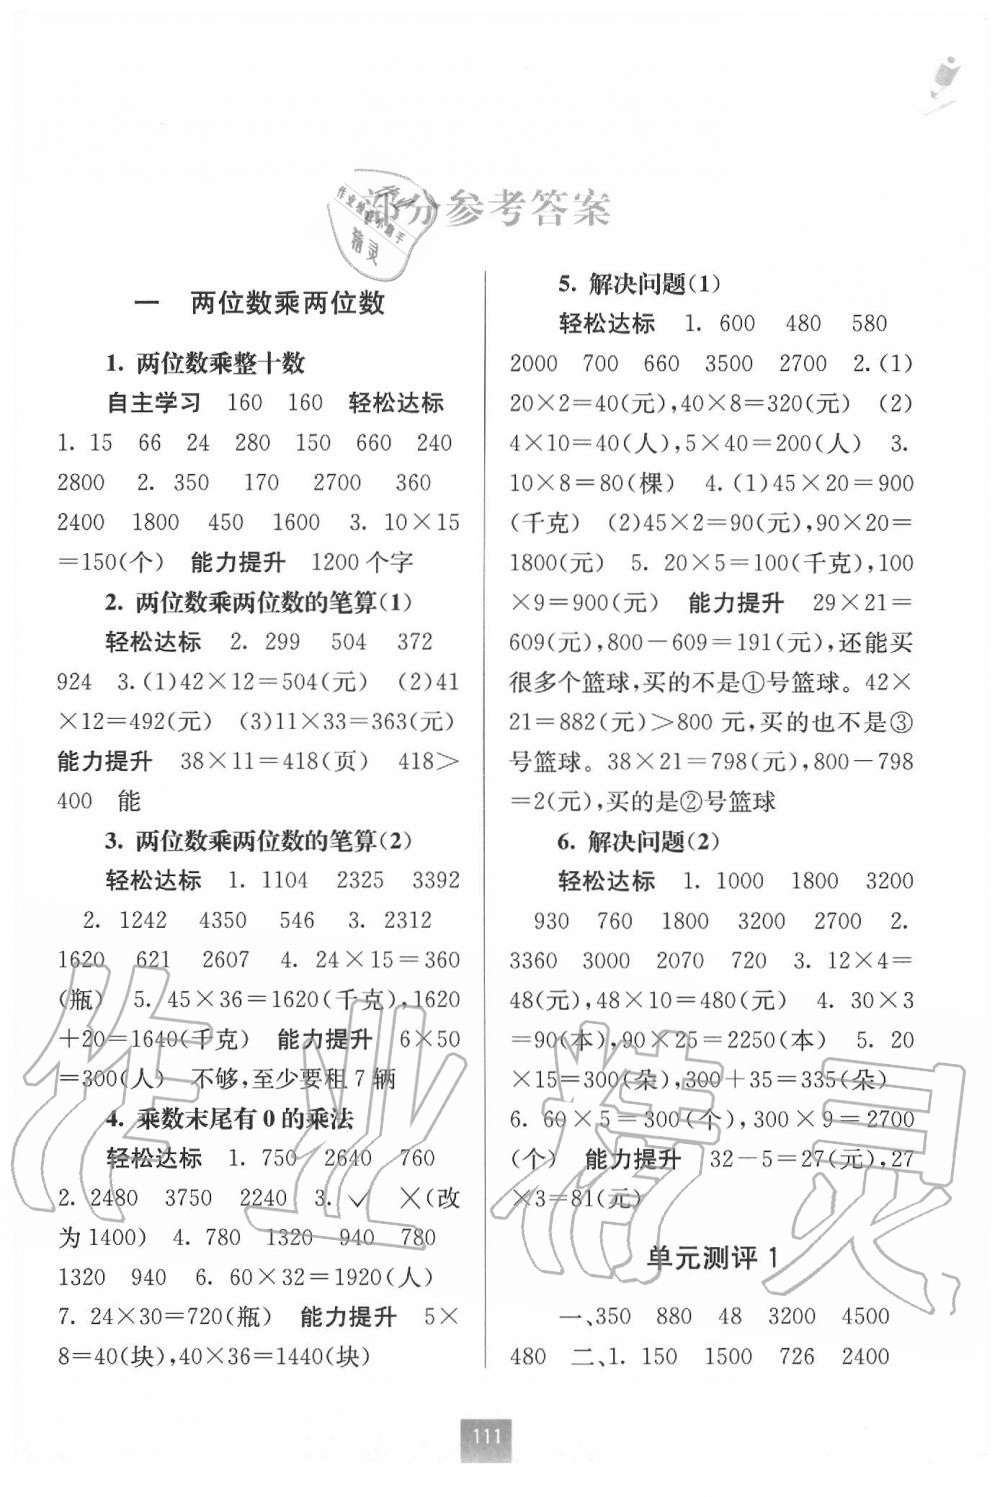 部分参考答案
作业检查小助手
精灵
一 两位数乘两位数
1. 两位数乘整十数
自主学习 160 160 轻松达标
1. 15 66 24 280 150 660 240
2800 2. 350 170 2700 360
2400 1800 450 1600 3. 10×15
=150(个) 能力提升 1200 个字
2. 两位数乘两位数的笔算(1)
轻松达标 2. 299 504 372
924 3.(1)42×12=504(元) (2)41
×12=492(元) (3)11×33=363(元)
能力提升 38×11=418(页) 418>
400 能
3. 两位数乘两位数的笔算(2)
轻松达标 1. 1104 2325 3392
2. 1242 4350 546 3. 2312
1620 621 2607 4. 24×15=360
(瓶) 5. 45×36=1620(千克),1620
+20=1640(千克) 能力提升 6×50
=300(人) 不够,至少要租 7 辆
4. 乘数末尾有 0 的乘法
轻松达标 1. 750 2640 760
2. 2480 3750 2240 3. ✓ ×(改
为 1400) 4. 780 1320 940 780
1320 940 6. 60×32=1920(人)
7. 24×30=720(瓶) 能力提升 5×
8=40(块),40×36=1440(块)
5. 解决问题(1)
轻松达标 1. 600 480 580
2000 700 660 3500 2700 2.(1)
20×2=40(元),40×8=320(元) (2)
4×10=40(人),5×40=200(人) 3.
10×8=80(棵) 4.(1)45×20=900
(千克) (2)45×2=90(元),90×20=
1800(元) 5. 20×5=100(千克),100
×9=900(元) 能力提升 29×21=
609(元),800-609=191(元),还能买
很多个篮球,买的不是①号篮球。42×
21=882(元)>800 元,买的也不是③
号篮球。38×21=798(元),800-798
=2(元),买的是②号篮球
6. 解决问题(2)
轻松达标 1. 1000 1800 3200
930 760 1800 3200 2700 2.
3360 3000 2070 720 3. 12×4=
48(元),48×10=480(元) 4. 30×3
=90(本),90×25=2250(本) 5. 20
×15=300(朵),300+35=335(朵)
6. 60×5=300(个),300×9=2700
(个) 能力提升 32-5=27(元),27
×3=81(元)
单元测评 1
一、350 880 48 3200 4500
480 二、1. 150 1500 726 2400
111
作业精灵